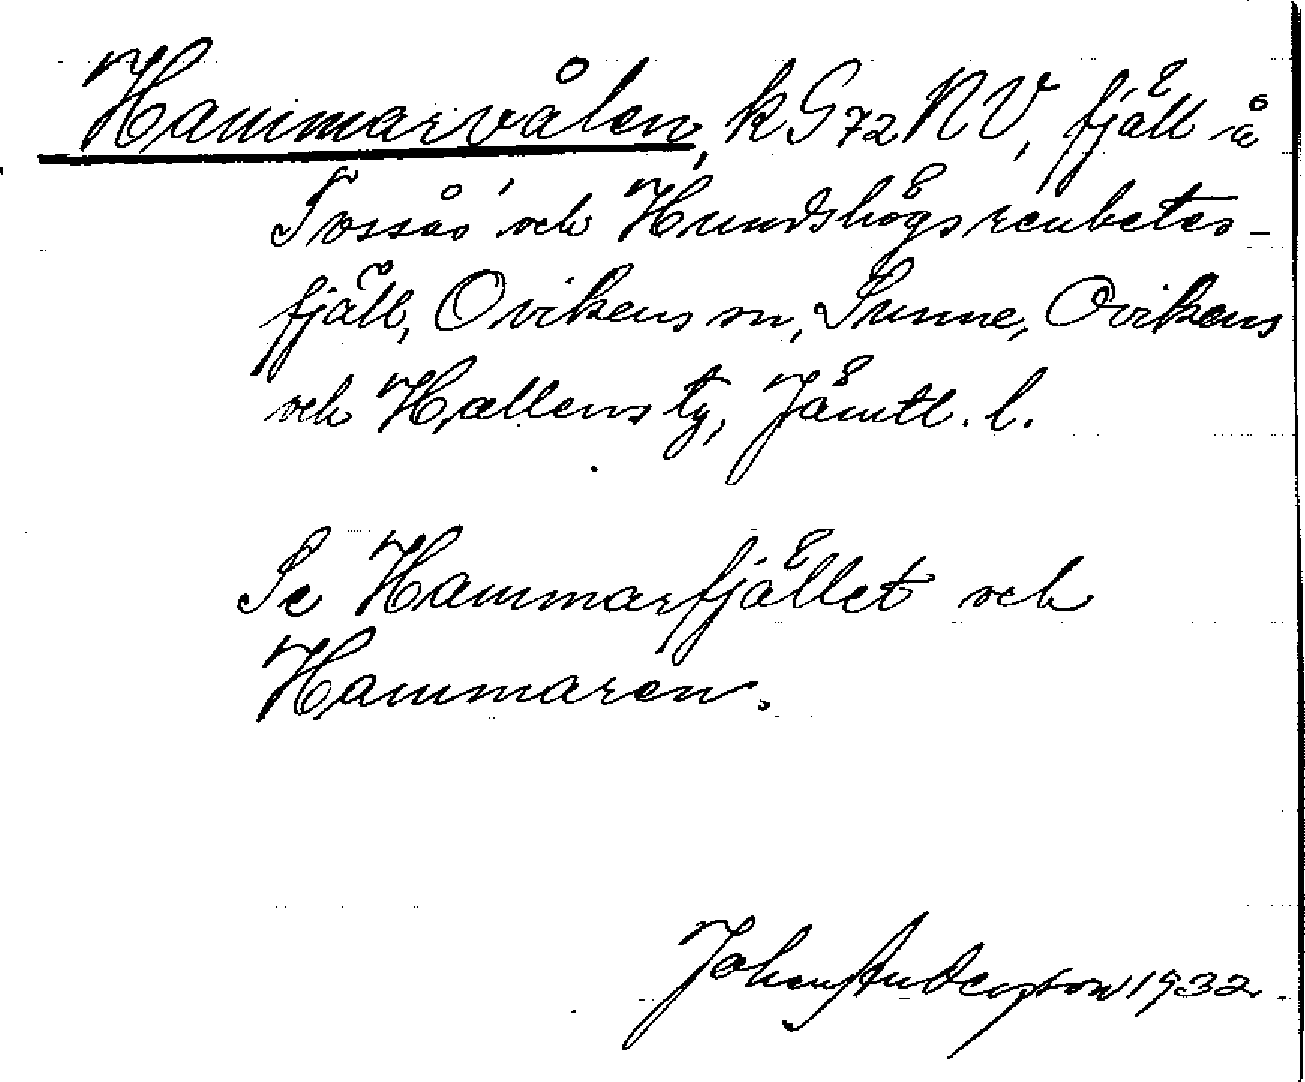 Hammarvålen, k G72 NV, fjäll å
Tossås och Hundshögs renbetes-
fjäll, Ovikens sn, Sunne, Ovikens
och Hallens tg, Jämtl. l.
Se Hammarfjället och
Hammaren.
Johan Anderson 1932.